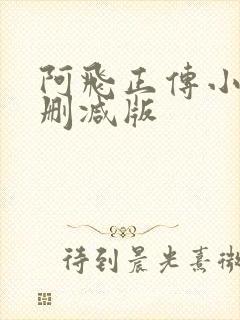 阿飛正傳小
删减版
待到晨光熹微